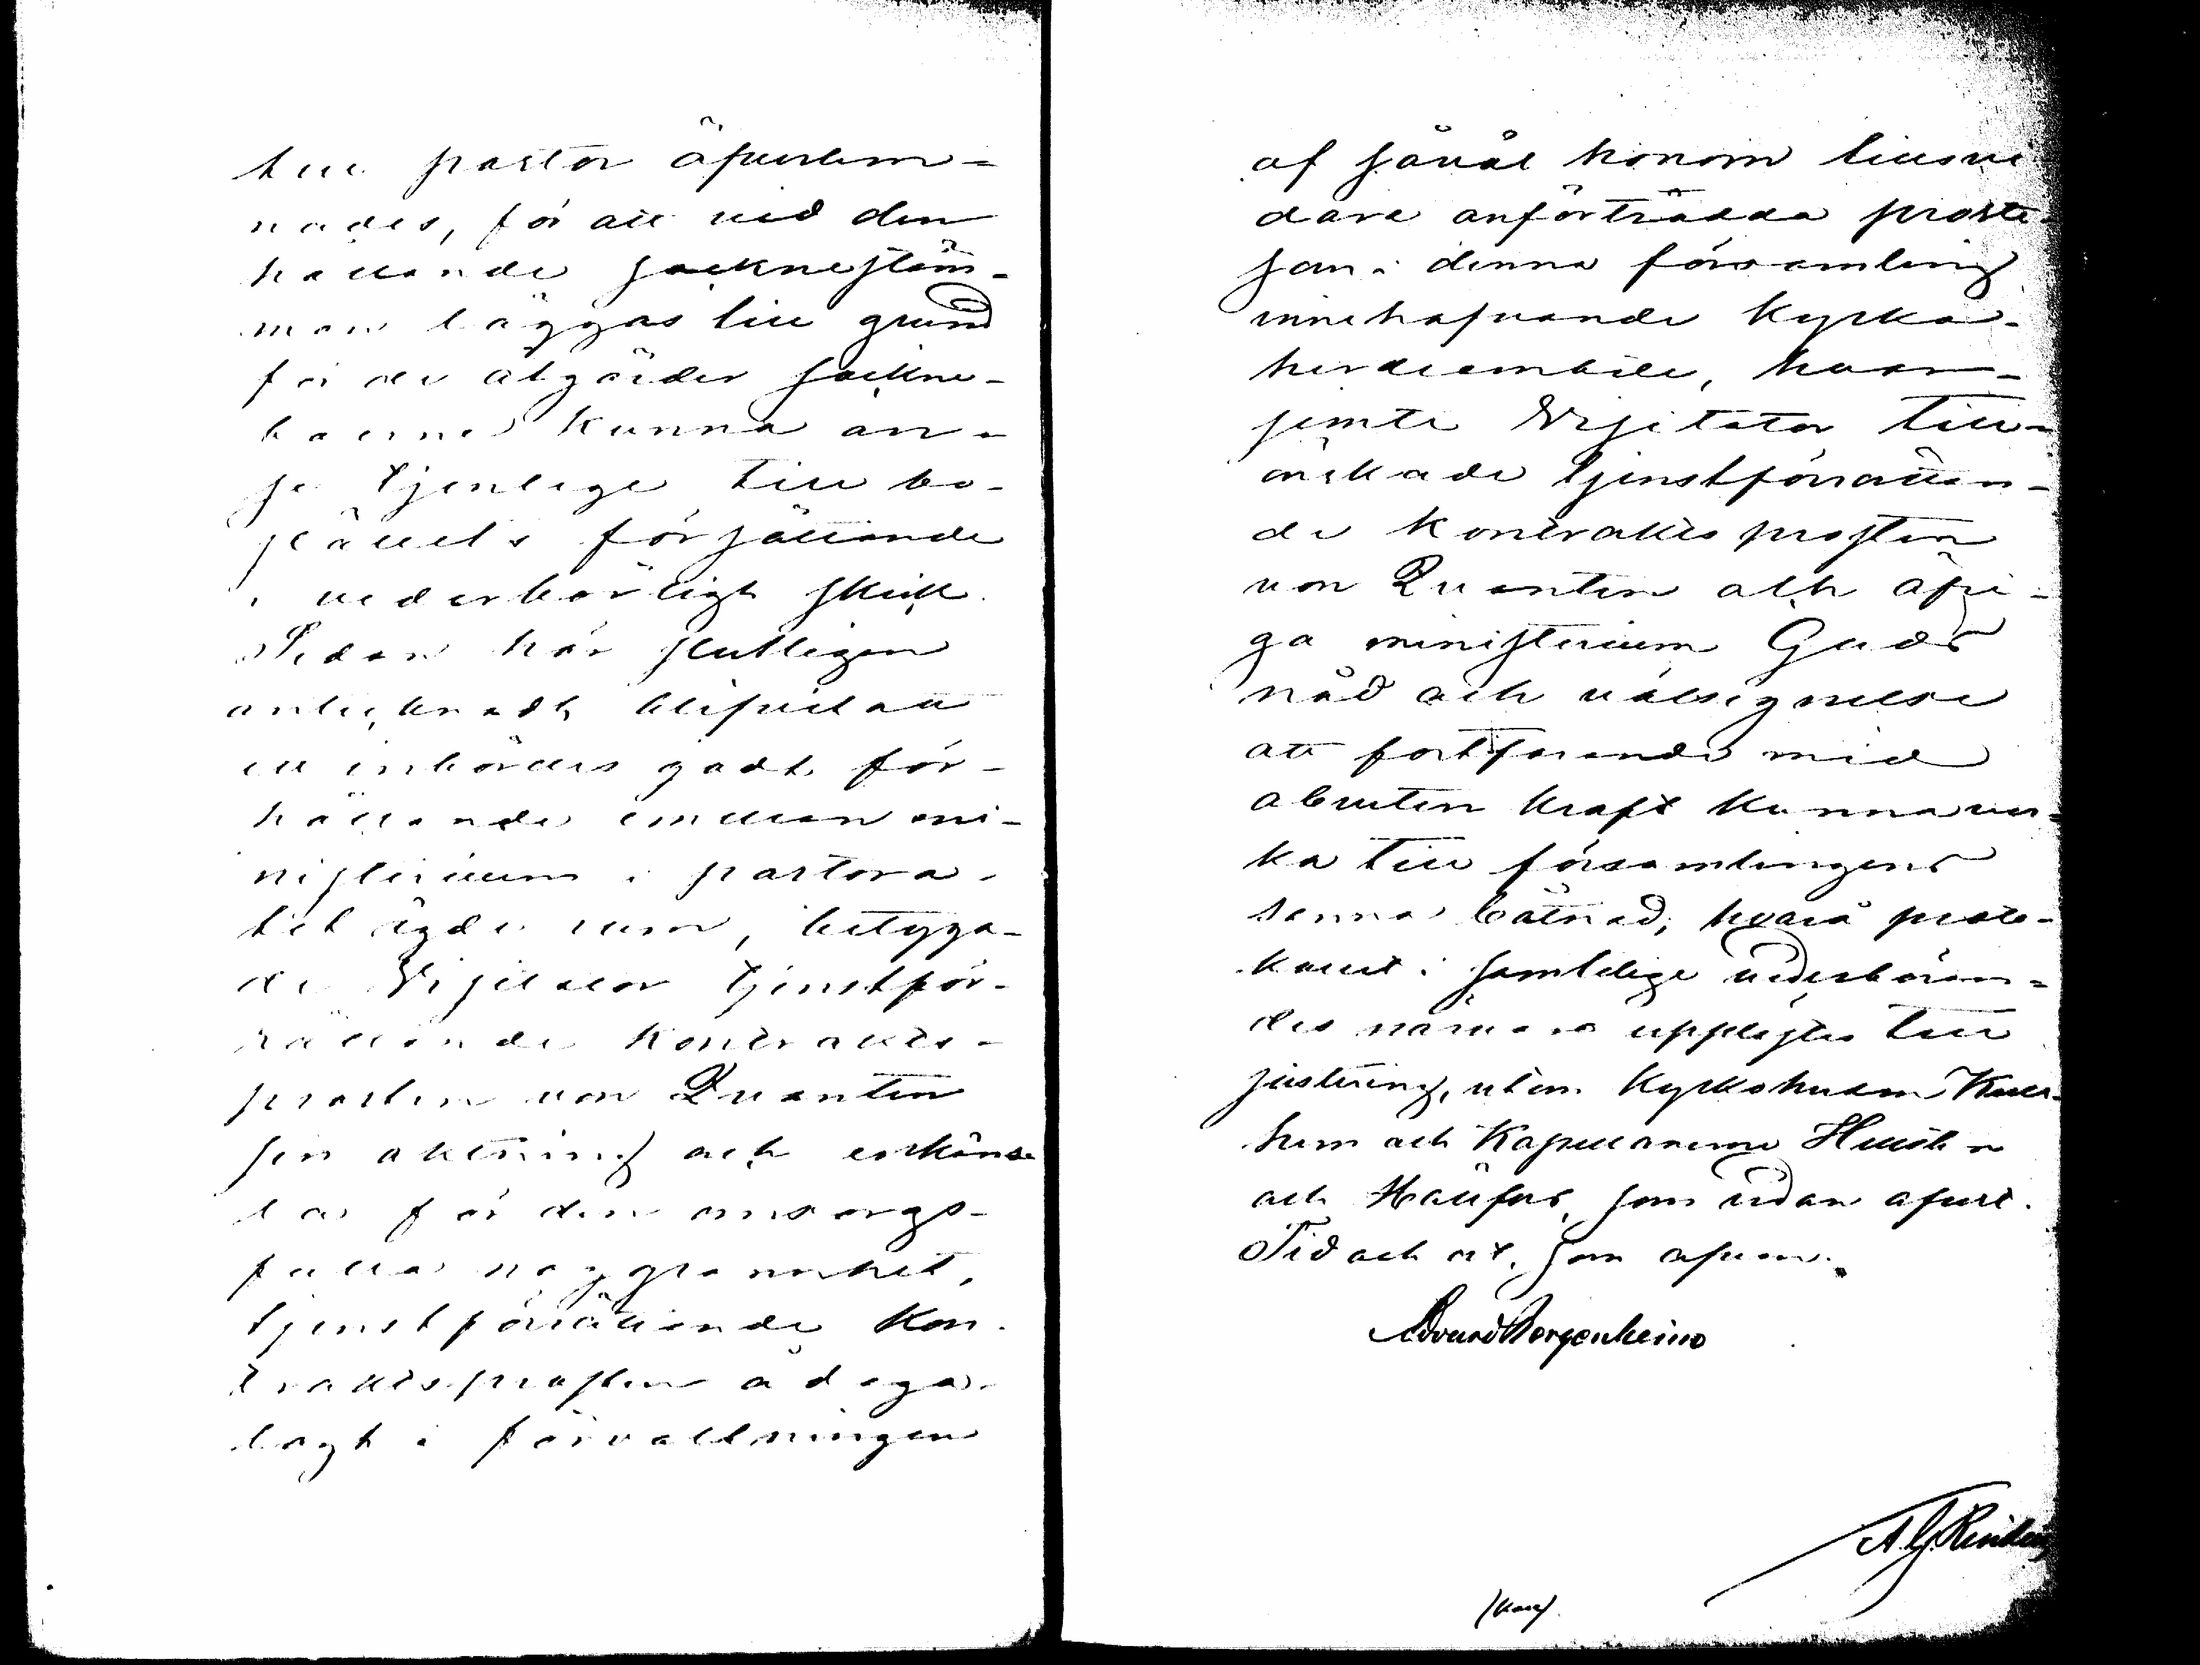 till pastor öfverlem-
nades, för att vid den
hållande sockneståm-
man läggas till grund
för de åtgärder sockne-
boerne kunna an-
se tjenlige till bo-
ställets försättande
i vederbörligt skick.
Sedan här slutligen
antecknadt blifvit att
ett inbördes godt för-
hållande emellan mi-
nisterium i pastora-
tet ägde rum, betyga-
de Visitator tjenstför-
rättande kontrakts-
prosten von Qvanten
sin aktning och erkänsla
för den omsorgs-
fulla noggrannhet,
tjenstförrättande Kon-
traktsprosten å daga
lagt i förvaltningen
af såväl honom tillsvi
dare anförtrodda proste
som i denna församling
innehafvande Kyrko-
herdeembete, hvar-
jemte Visitator till-
önskade tjenstförrättan-
de Kontraktsprosten
von Qvanten och öfri-
ga ministerium Guds
nåd och välsignelse
att fortfarande med
obruten kraft kunna ver-
ka till församlingens
sanna båtnad; hvarå proto-
kollet i samtelige vederböran-
des närvaro upplästes till
justering, utom Kyrkoherden
och Kapellanerne
och som redan afrest.
Tid och ort, som ofvan.
Edvard Bergenheim